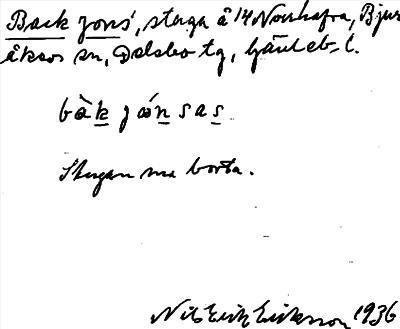 Back Jons, stuga å 14 Norrhafra, Bjur
åkers sn, Delsbo tg, Gävleb. l.
bàk jónsas
Stugan nu borta.
Nils Erik Eriksson 1936